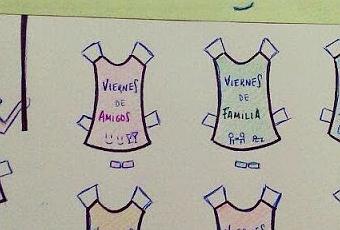 VIERNES
DE
AMIGOS
VIERNES
DE
FAMILIA